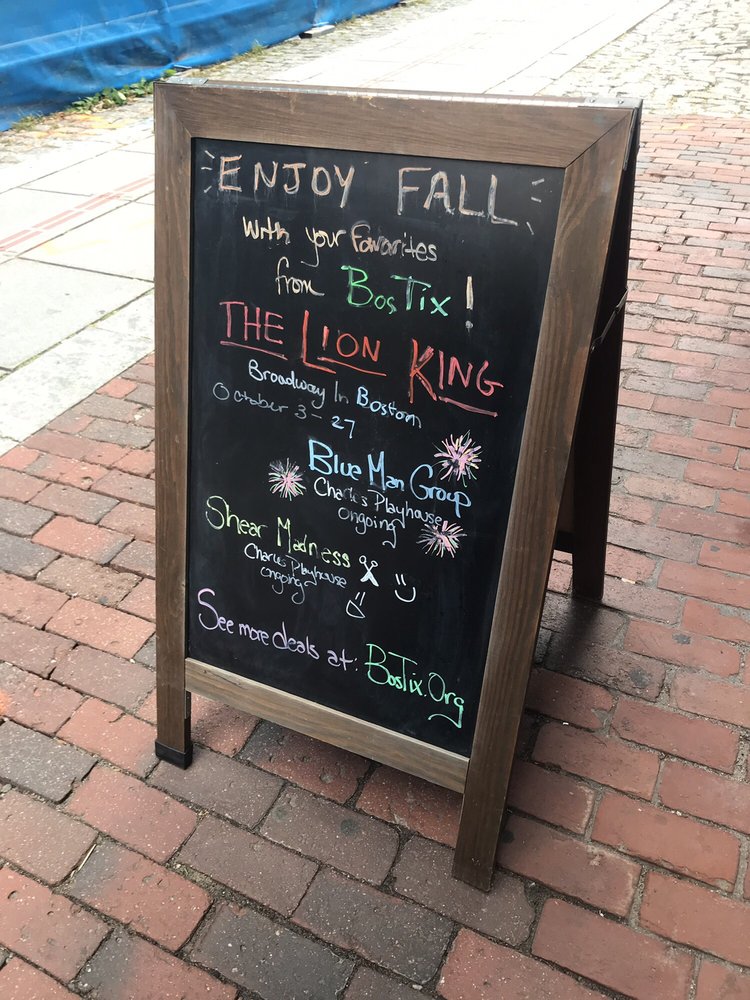 ENJOY FALL
with your favorites
from BosTix!
THE LION KING
Broadway In Boston
October 3-27
Blue Man Group
Charles Playhouse
ongoing
Shear Madness
Charles Playhouse
ongoing
See more deals at: BosTix.Org